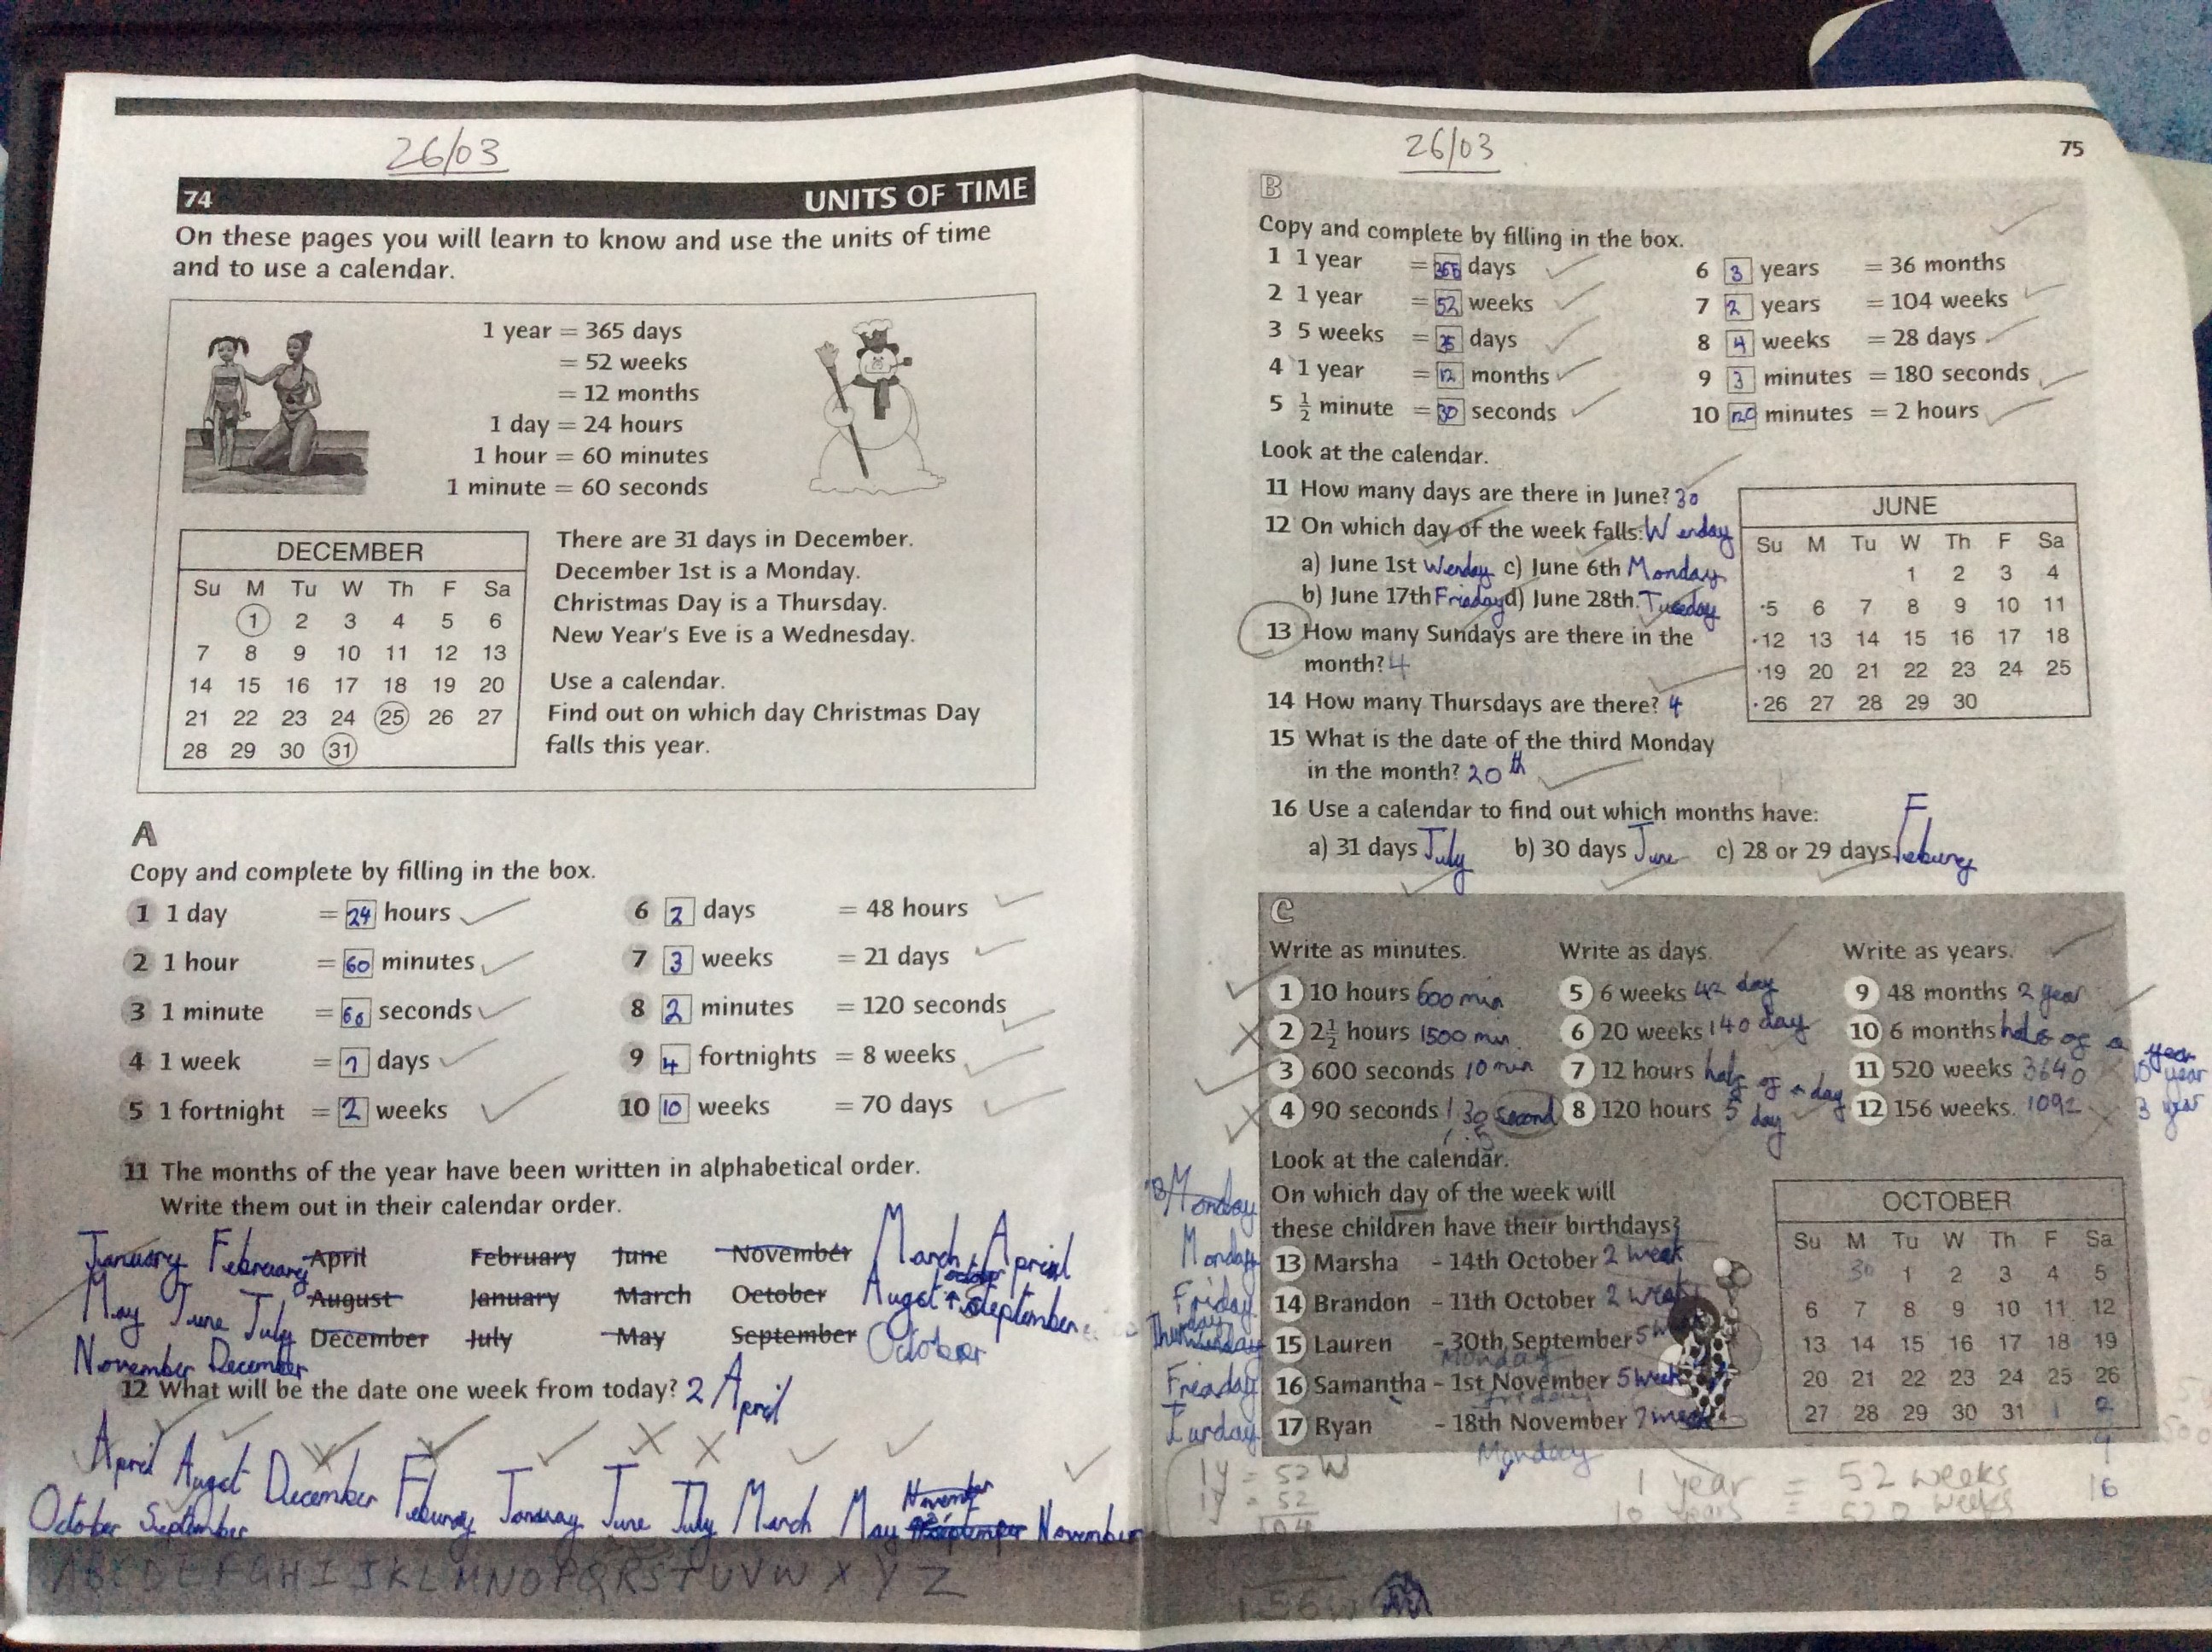 26/03
74 UNITS OF TIME
On these pages you will learn to know and use the units of time
and to use a calendar.
1 year = 365 days
= 52 weeks
= 12 months
1 day = 24 hours
1 hour = 60 minutes
1 minute = 60 seconds
DECEMBER
Su M Tu W Th F Sa
1 2 3 4 5 6
7 8 9 10 11 12 13
14 15 16 17 18 19 20
21 22 23 24 25 26 27
28 29 30 31
There are 31 days in December.
December 1st is a Monday.
Christmas Day is a Thursday.
New Year's Eve is a Wednesday.
Use a calendar.
Find out on which day Christmas Day
falls this year.
A
Copy and complete by filling in the box.
1 1 day = 24 hours
2 1 hour = 60 minutes
3 1 minute = 60 seconds
4 1 week = 7 days
5 1 fortnight = 2 weeks
6 2 days = 48 hours
7 3 weeks = 21 days
8 2 minutes = 120 seconds
9 4 fortnights = 8 weeks
10 10 weeks = 70 days
11 The months of the year have been written in alphabetical order.
Write them out in their calendar order.
January February April February June November March April
May June July August January March October Auget September
November December December July May September October
12 What will be the date one week from today? 2 April
April Auget December Feburay January June July March May November
October September November
A B C D E F G H I J K L M N O P Q R S T U V W X Y Z
26/03
75
B
Copy and complete by filling in the box.
1 1 year = 365 days
2 1 year = 52 weeks
3 5 weeks = 35 days
4 1 year = 12 months
5 ½ minute = 30 seconds
6 3 years = 36 months
7 2 years = 104 weeks
8 4 weeks = 28 days
9 3 minutes = 180 seconds
10 120 minutes = 2 hours
Look at the calendar.
11 How many days are there in June? 30
12 On which day of the week falls: Wenday
a) June 1st Wenday c) June 6th Monday
b) June 17th Friaday d) June 28th. Tuesday
13 How many Sundays are there in the
month? 4
14 How many Thursdays are there? 4
15 What is the date of the third Monday
in the month? 20th
16 Use a calendar to find out which months have:
a) 31 days July b) 30 days June c) 28 or 29 days Feburay
JUNE
Su M Tu W Th F Sa
1 2 3 4
5 6 7 8 9 10 11
12 13 14 15 16 17 18
19 20 21 22 23 24 25
26 27 28 29 30
C
Write as minutes.
1 10 hours 600 min
2 2½ hours 1500 min
3 600 seconds 10 min
4 90 seconds 1.30 second
Write as days.
5 6 weeks 42 day
6 20 weeks 140 day
7 12 hours half of a day
8 120 hours 5 day
Write as years.
9 48 months 2 year
10 6 months half of a year
11 520 weeks 3640 10 year
12 156 weeks. 1092 3 year
Look at the calendar.
On which day of the week will
these children have their birthdays?
Monday 13 Marsha - 14th October 2 week
Friday 14 Brandon - 11th October 2 week
15 Lauren - 30th September 5 week
Monday
Freaday 16 Samantha - 1st November 5 week
Friday
17 Ryan - 18th November 7 week
Monday
OCTOBER
Su M Tu W Th F Sa
30 1 2 3 4 5
6 7 8 9 10 11 12
13 14 15 16 17 18 19
20 21 22 23 24 25 26
27 28 29 30 31 1 2
1y = 52 W
1y = 52
156 W
1 year = 52 weeks
10 years = 520 weeks
16